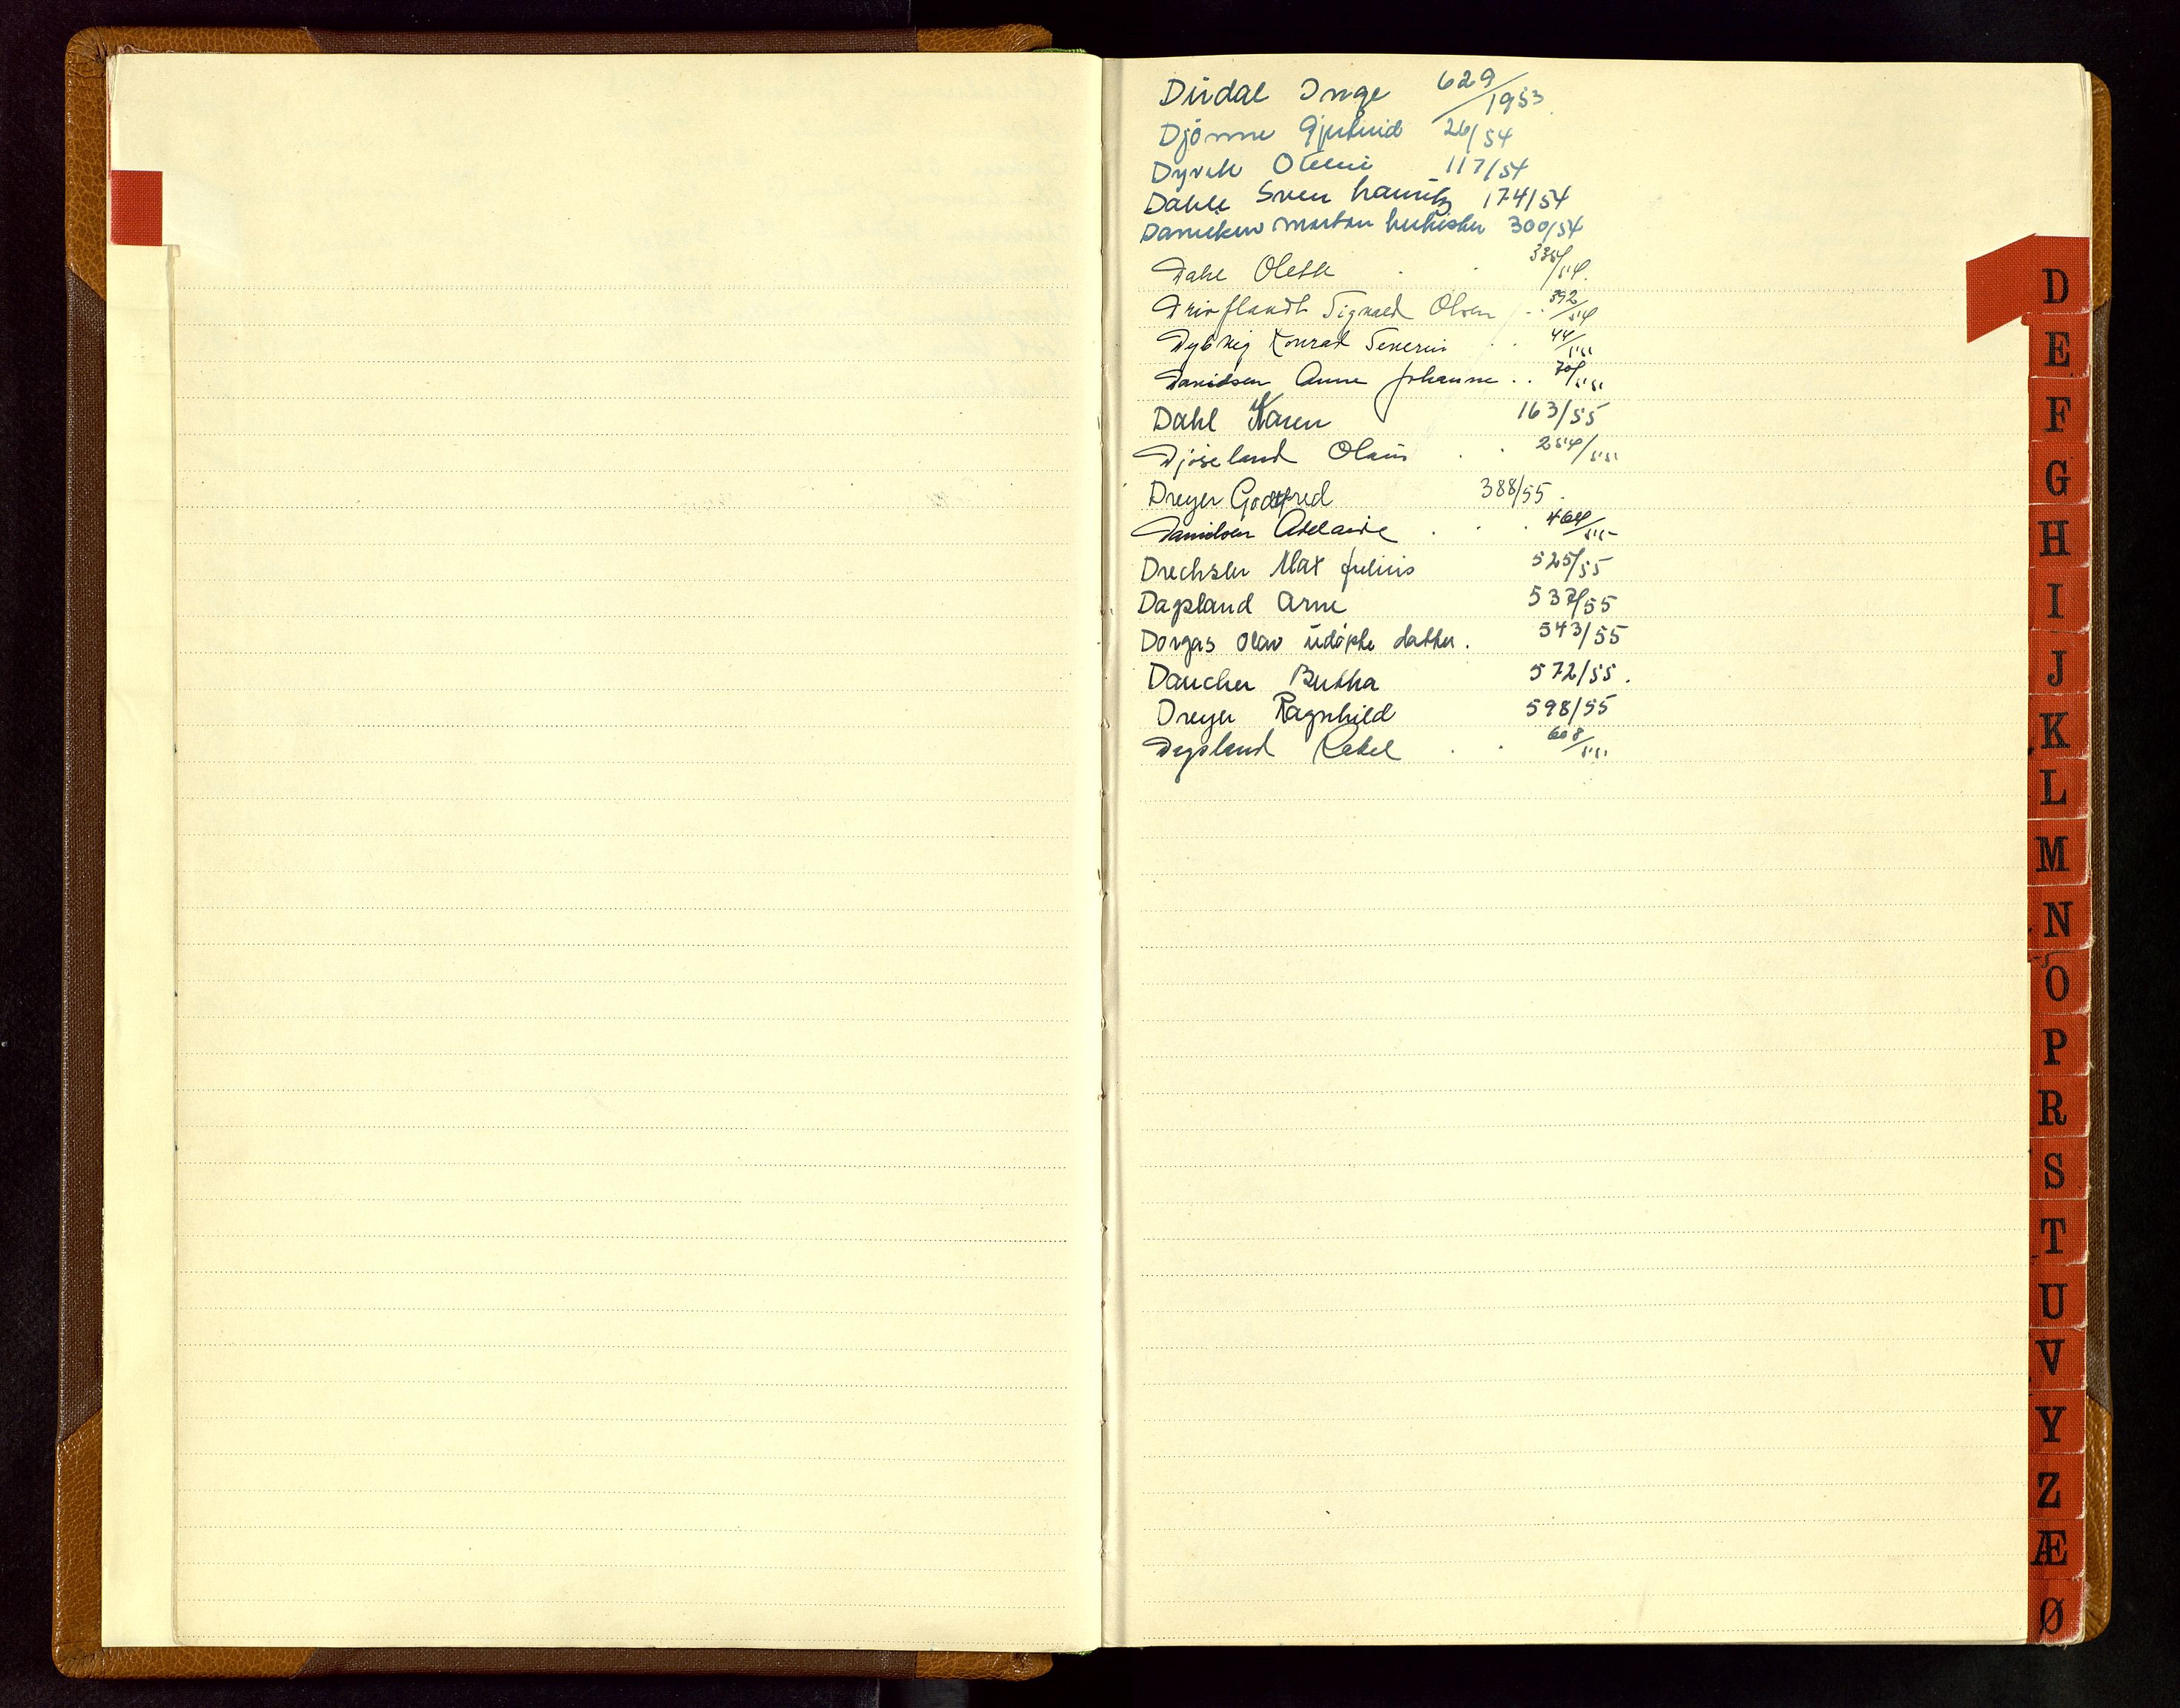 Dirdal Inge 629/1953
Djønne Gjertruid 26/54
Dyrvik Oteni 117/54
Dahle Sven Lauritz 174/54
Danielsen Morten 300/54
Dahl Olette 334/54.
Drivflandt Sigvald Olsen 392/54
Dybvig Konrad Severin 44/55
Davidsen Anne Johanne 70/55
Dahl Karen 163/55
Djøseland Olaus 254/55
Dreyer Godtfred 388/55.
Danielsen Adelaide 464/55
Drechsler Max Julius 525/55
Dagsland Arne 537/55
Dorgas Olav udøpte datter. 543/55
Daucher Bertha 572/55.
Dreyer Ragnhild 598/55
Dagsland Rakel 608/55
D
E
F
G
H
I
J
K
L
M
N
O
P
R
S
T
U
V
Y
Z
Æ
Ø